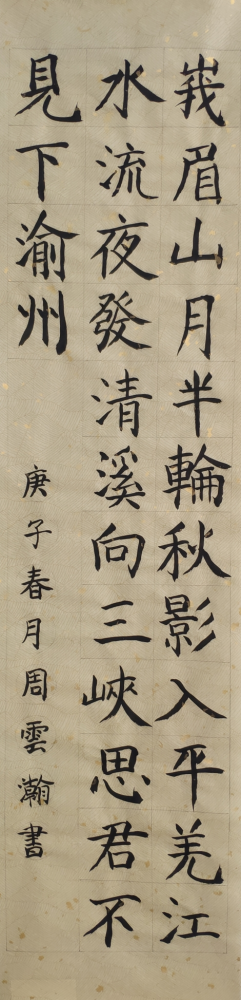 峩眉山月半輪秋影入平羌江
水流夜發清溪向三峽思君不
見下渝州
庚子春月周雲瀚書